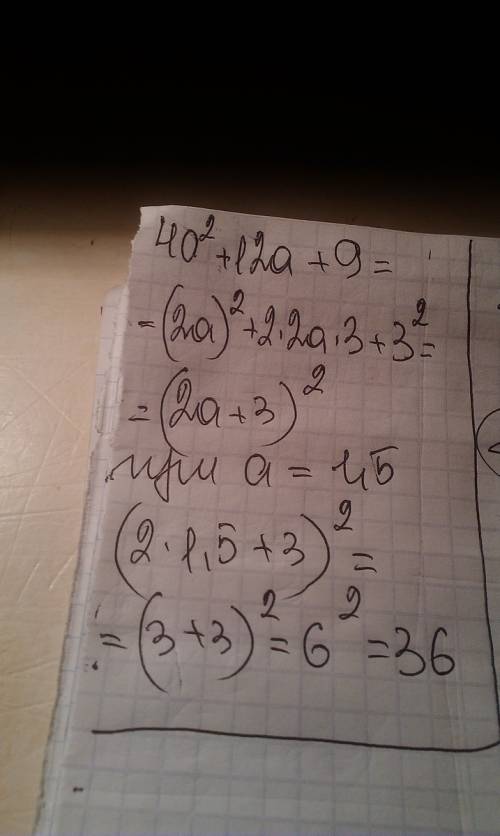 4a²+12a+9=
=(2a)²+2·2a·3+3²=
=(2a+3)²
при a=1,5
(2·1,5+3)²=
=(3+3)²=6²=36